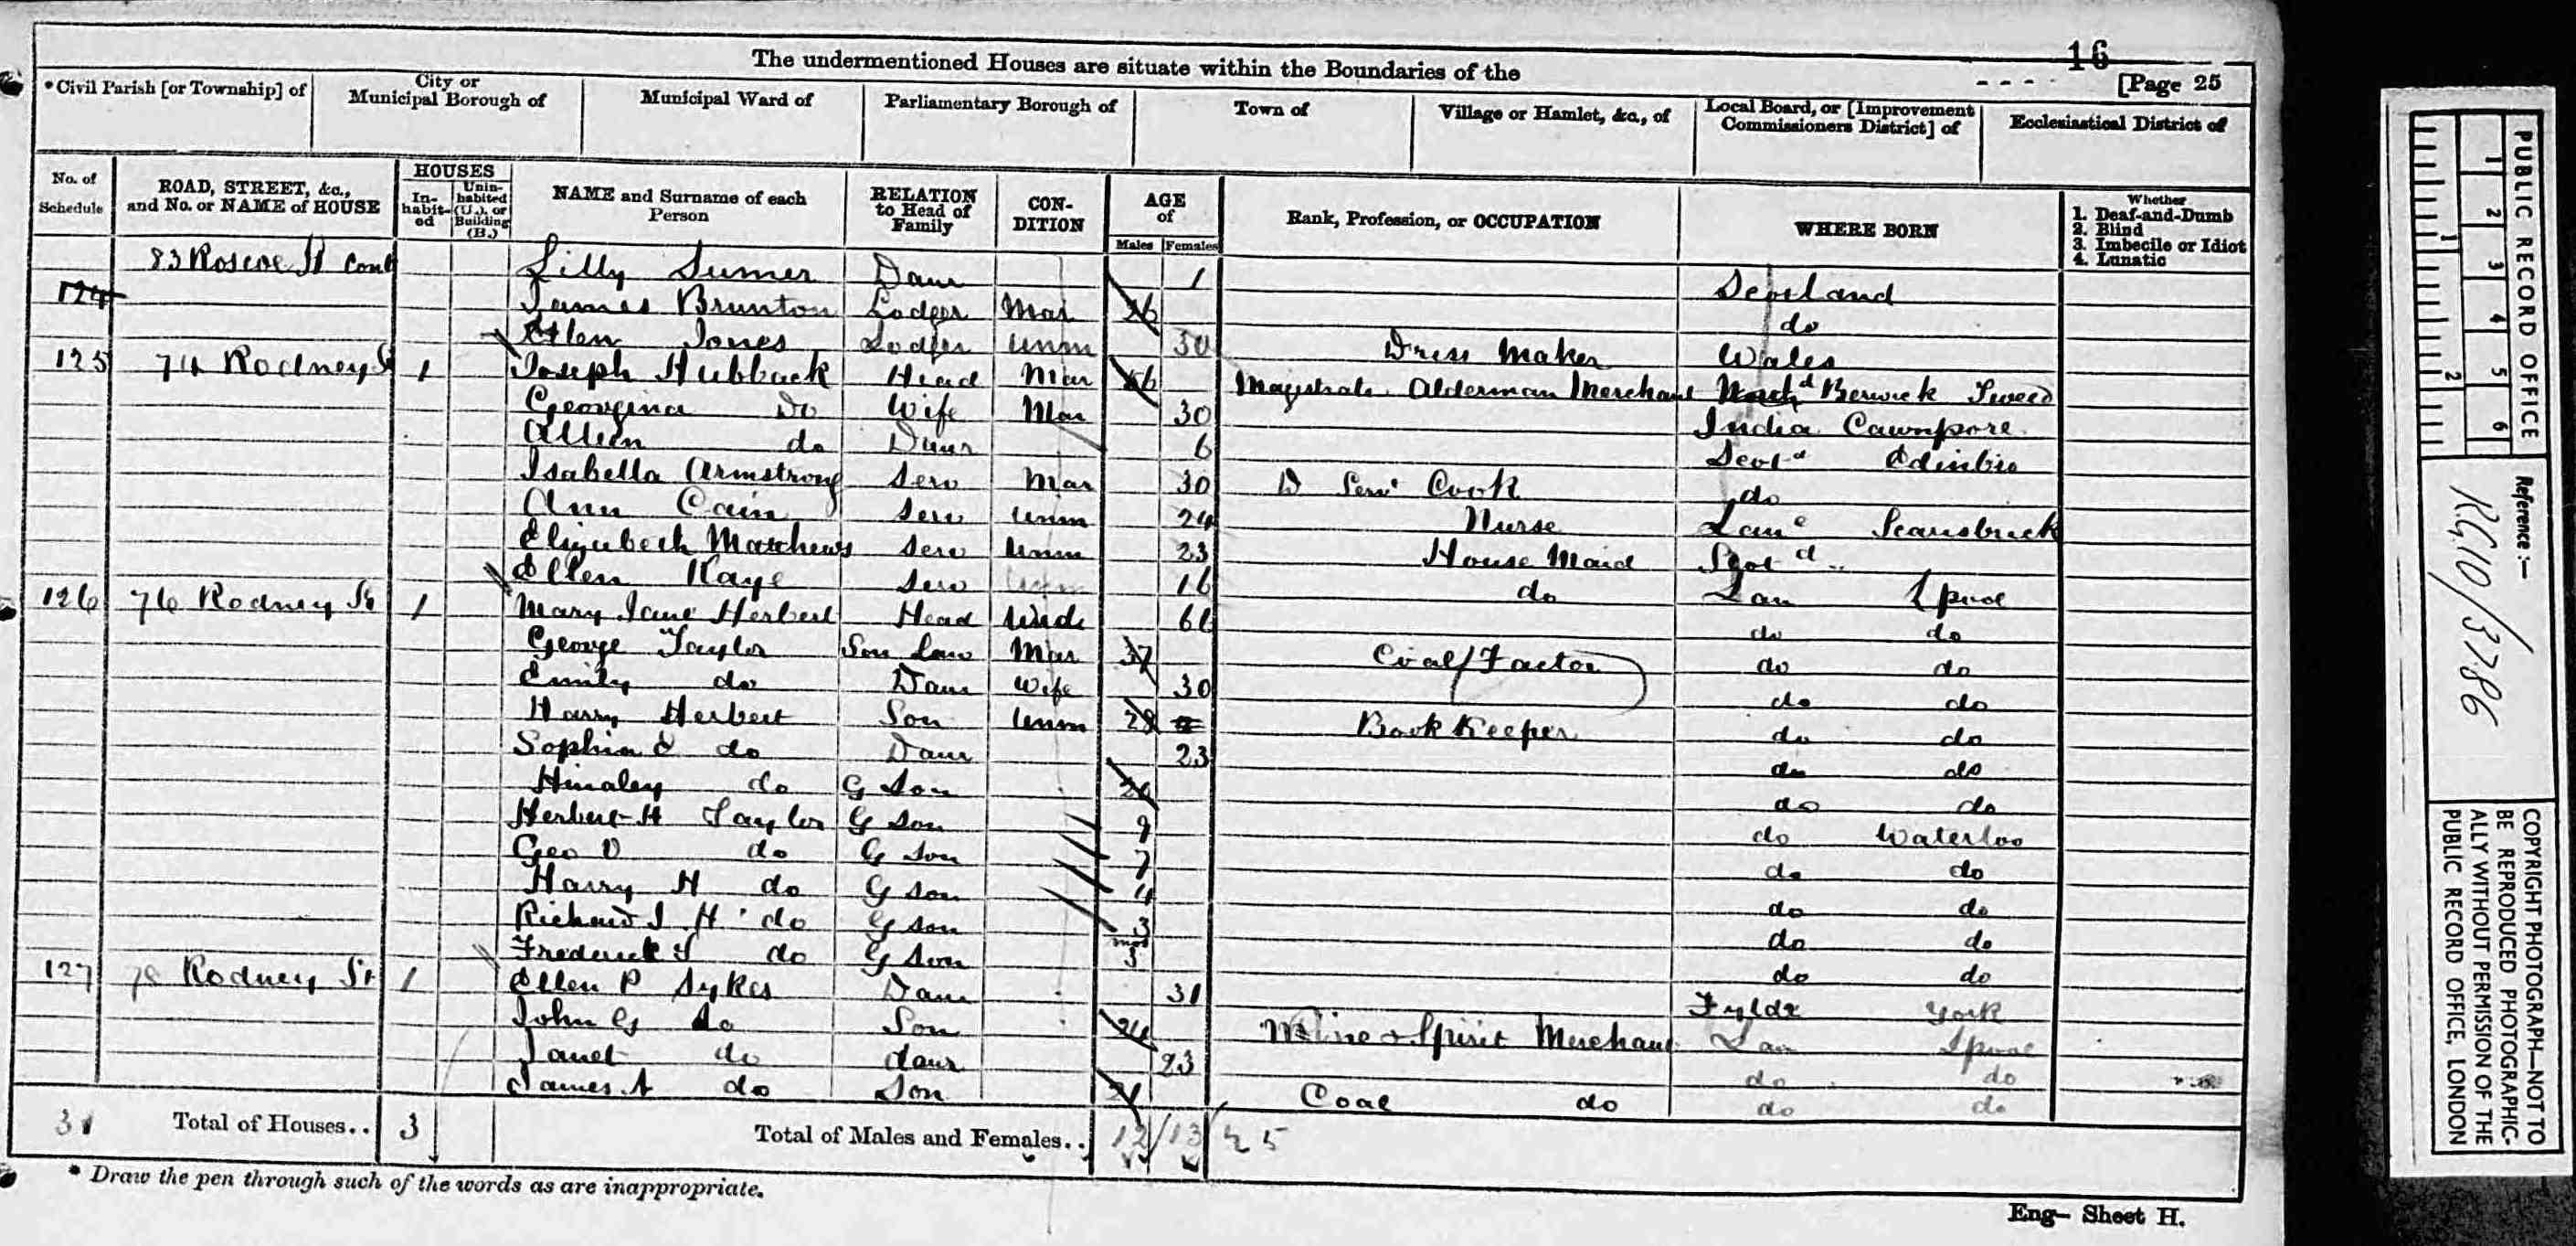 16
The undermentioned Houses are situate within the Boundaries of the
[Page 25
*Civil Parish [or Township] of
City or Municipal Borough of
Municipal Ward of
Parliamentary Borough of
Town of
Village or Hamlet, &c., of
Local Board, or [Improvement Commissioners District] of
Ecclesiastical District of
No. of Schedule
ROAD, STREET, &c., and No. or NAME of HOUSE
HOUSES
In-habit-ed
Unin-habited (U.), or Building (B.)
NAME and Surname of each Person
RELATION to Head of Family
CON-DITION
AGE of
Males Females
Rank, Profession, or OCCUPATION
WHERE BORN
Whether
1. Deaf-and-Dumb
2. Blind
3. Imbecile or Idiot
4. Lunatic
83 Roscoe St Cont Lilly Daur 1 Scotland
124 James Brunton Lodger Mar 26 do
Ellen Jones Lodger Unm 30 Dress Maker Wales
125 74 Rodney St 1 Joseph Hubback Head Mar Magistrate Alderman Merchant Berwick Tweed
Georgina Do Wife Mar 30 India Cawnpore
do Daur 6 Scotd Edinbro
Isabella Armstrong Serv Mar 30 D Serv Cook do
Ann Cain Serv Unm 24 Nurse Lanc
Elizabeth Matthews Serv Unm 23 House Maid Scotd
Ellen Kaye Serv 16 do Lan Lpool
126 76 Rodney St 1 Mary Jane Herbert Head Wid do do
George Taylor Son Law Mar 37 Coal Factor do do
Emily do Daur Wife 30 do do
Harry Herbert Son Unm 28 Book Keeper do do
Sophia E do Daur 23 do do
do G Son do do
Herbert H Taylor G Son 9 do Waterloo
Geo do G Son 7 do do
Harry H do G son 4 do do
Richard J H do G son 3 do do
Frederick do G Son mos 3 do do
127 78 Rodney St 1 Ellen P Sykes Daur 31 York
John G do Son 24 Wine & Spirit Merchant Lan Lpool
Janet do daur 23 do do
James A do Son 21 Coal do do do
Total of Houses.. 3
Total of Males and Females.. 12 13 25
* Draw the pen through such of the words as are inappropriate.
Eng— Sheet H.
PUBLIC RECORD OFFICE
1 2 3 4 5 6
1 2
Reference:—
RG10/3786
COPYRIGHT PHOTOGRAPH—NOT TO
BE REPRODUCED PHOTOGRAPHIC-
ALLY WITHOUT PERMISSION OF THE
PUBLIC RECORD OFFICE, LONDON